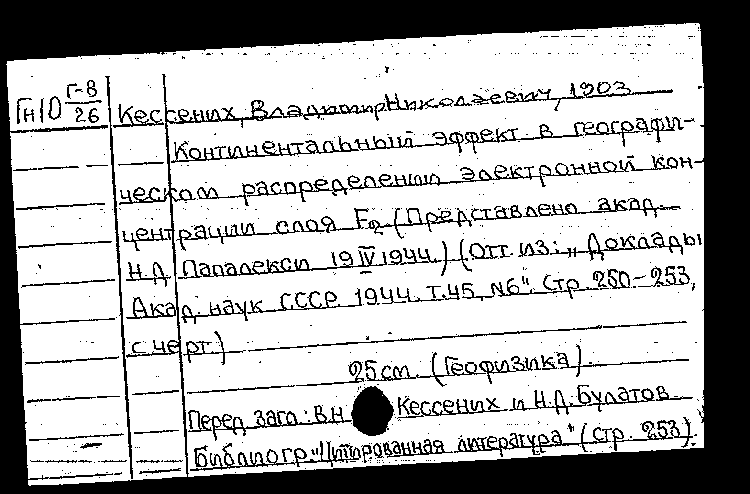 Гн10 Г-8/26
Кессених, Владимир Николаевич, 1903
Континентальный эффект в географи-
ческом распределении электронной кон-
центрации слоя F2. (Представлено акад.
Н.Д. Папалекси 19 IV 1944.) (Отт. из: „Доклады
Акад. наук СССР. 1944. Т.45, N6". Стр. 250-253,
с черт.)
25 см. (Геофизика).
Перед загл.: В.Н. Кессених и Н.Д. Булатов.
Библиогр. "Цитированная литература" (стр. 253).